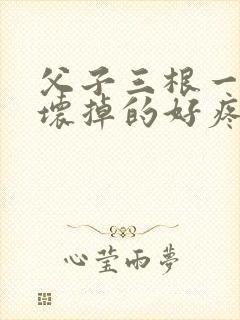 父子三根一
壞掉的好疼
心莹雨夢